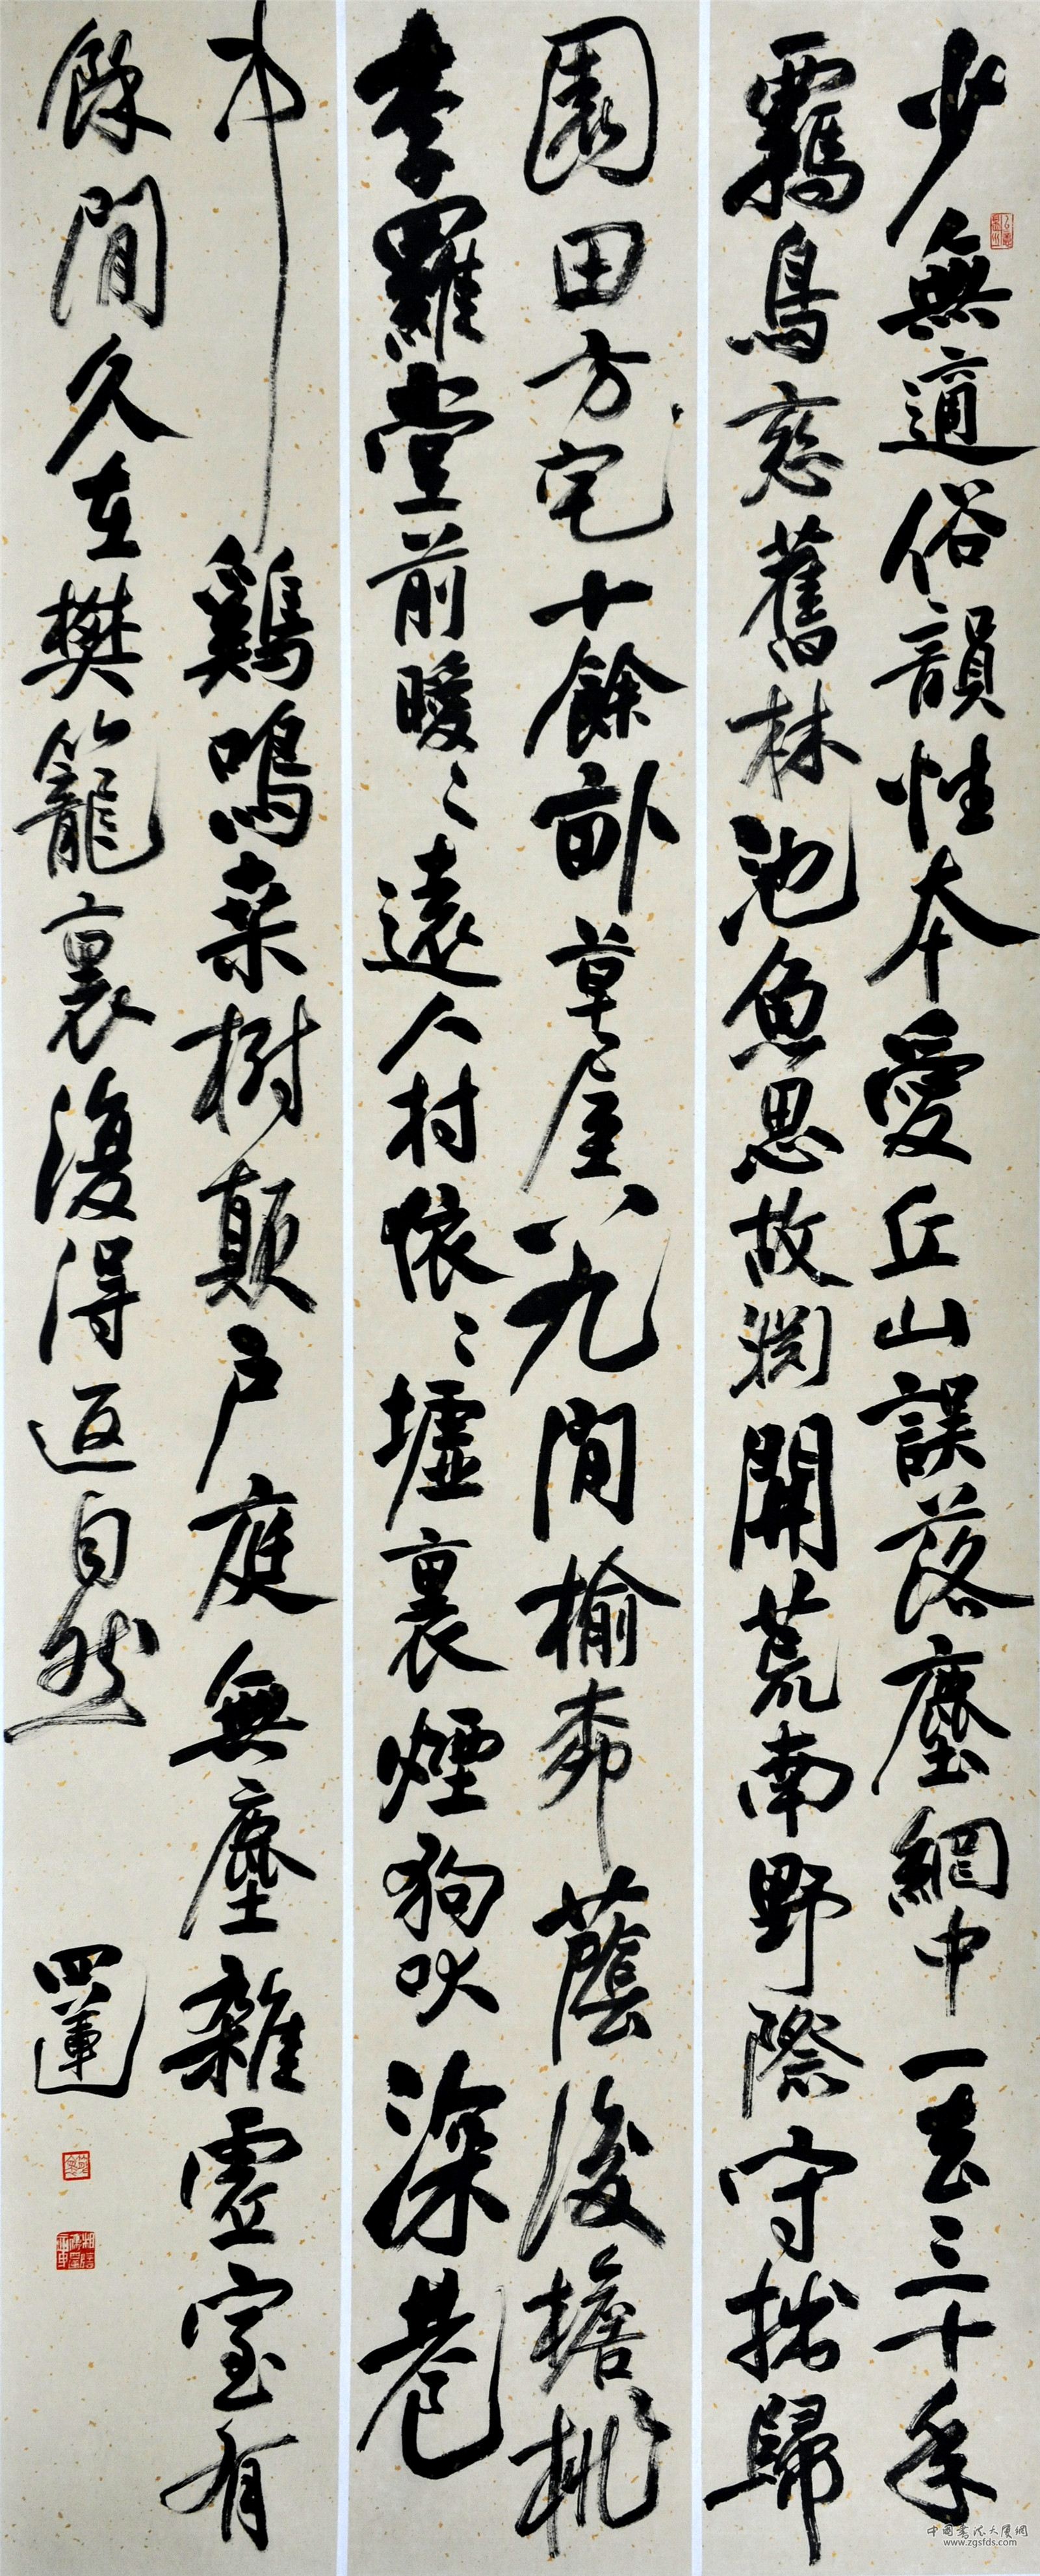 少無適俗韻性本愛丘山誤落塵網中一去三十年
羈鳥戀舊林池魚思故淵開荒南野際守拙歸
園田方宅十餘畝草屋八九間榆柳蔭後檐桃
李羅堂前曖〻遠人村依〻墟裏煙狗吠深巷
中鷄鳴桑樹顛戶庭無塵雜虛室有
餘閒久在樊籠裏復得返自然
中國書法大廈網
www.zgsfds.com